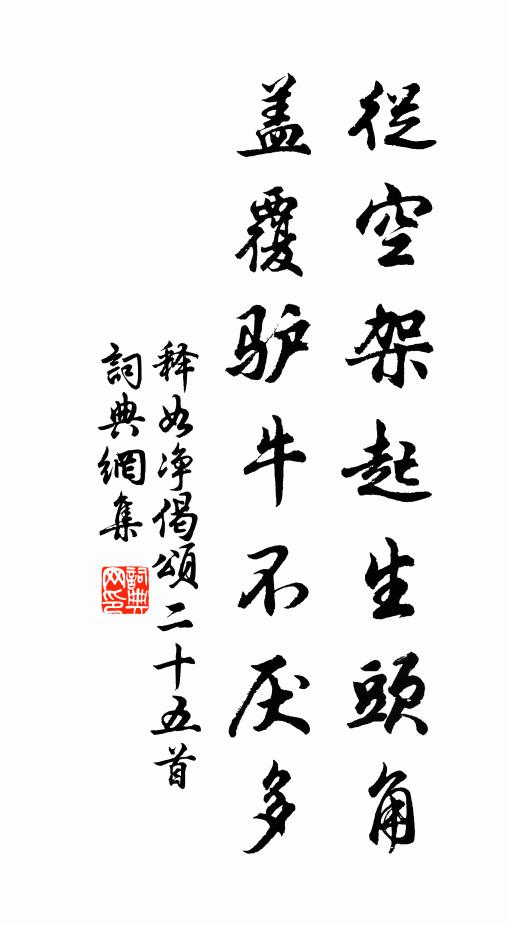 從空架起生頭角
盖覆驴牛不厌多
释如净偈頌二十五首
詞典網集
詞典网印